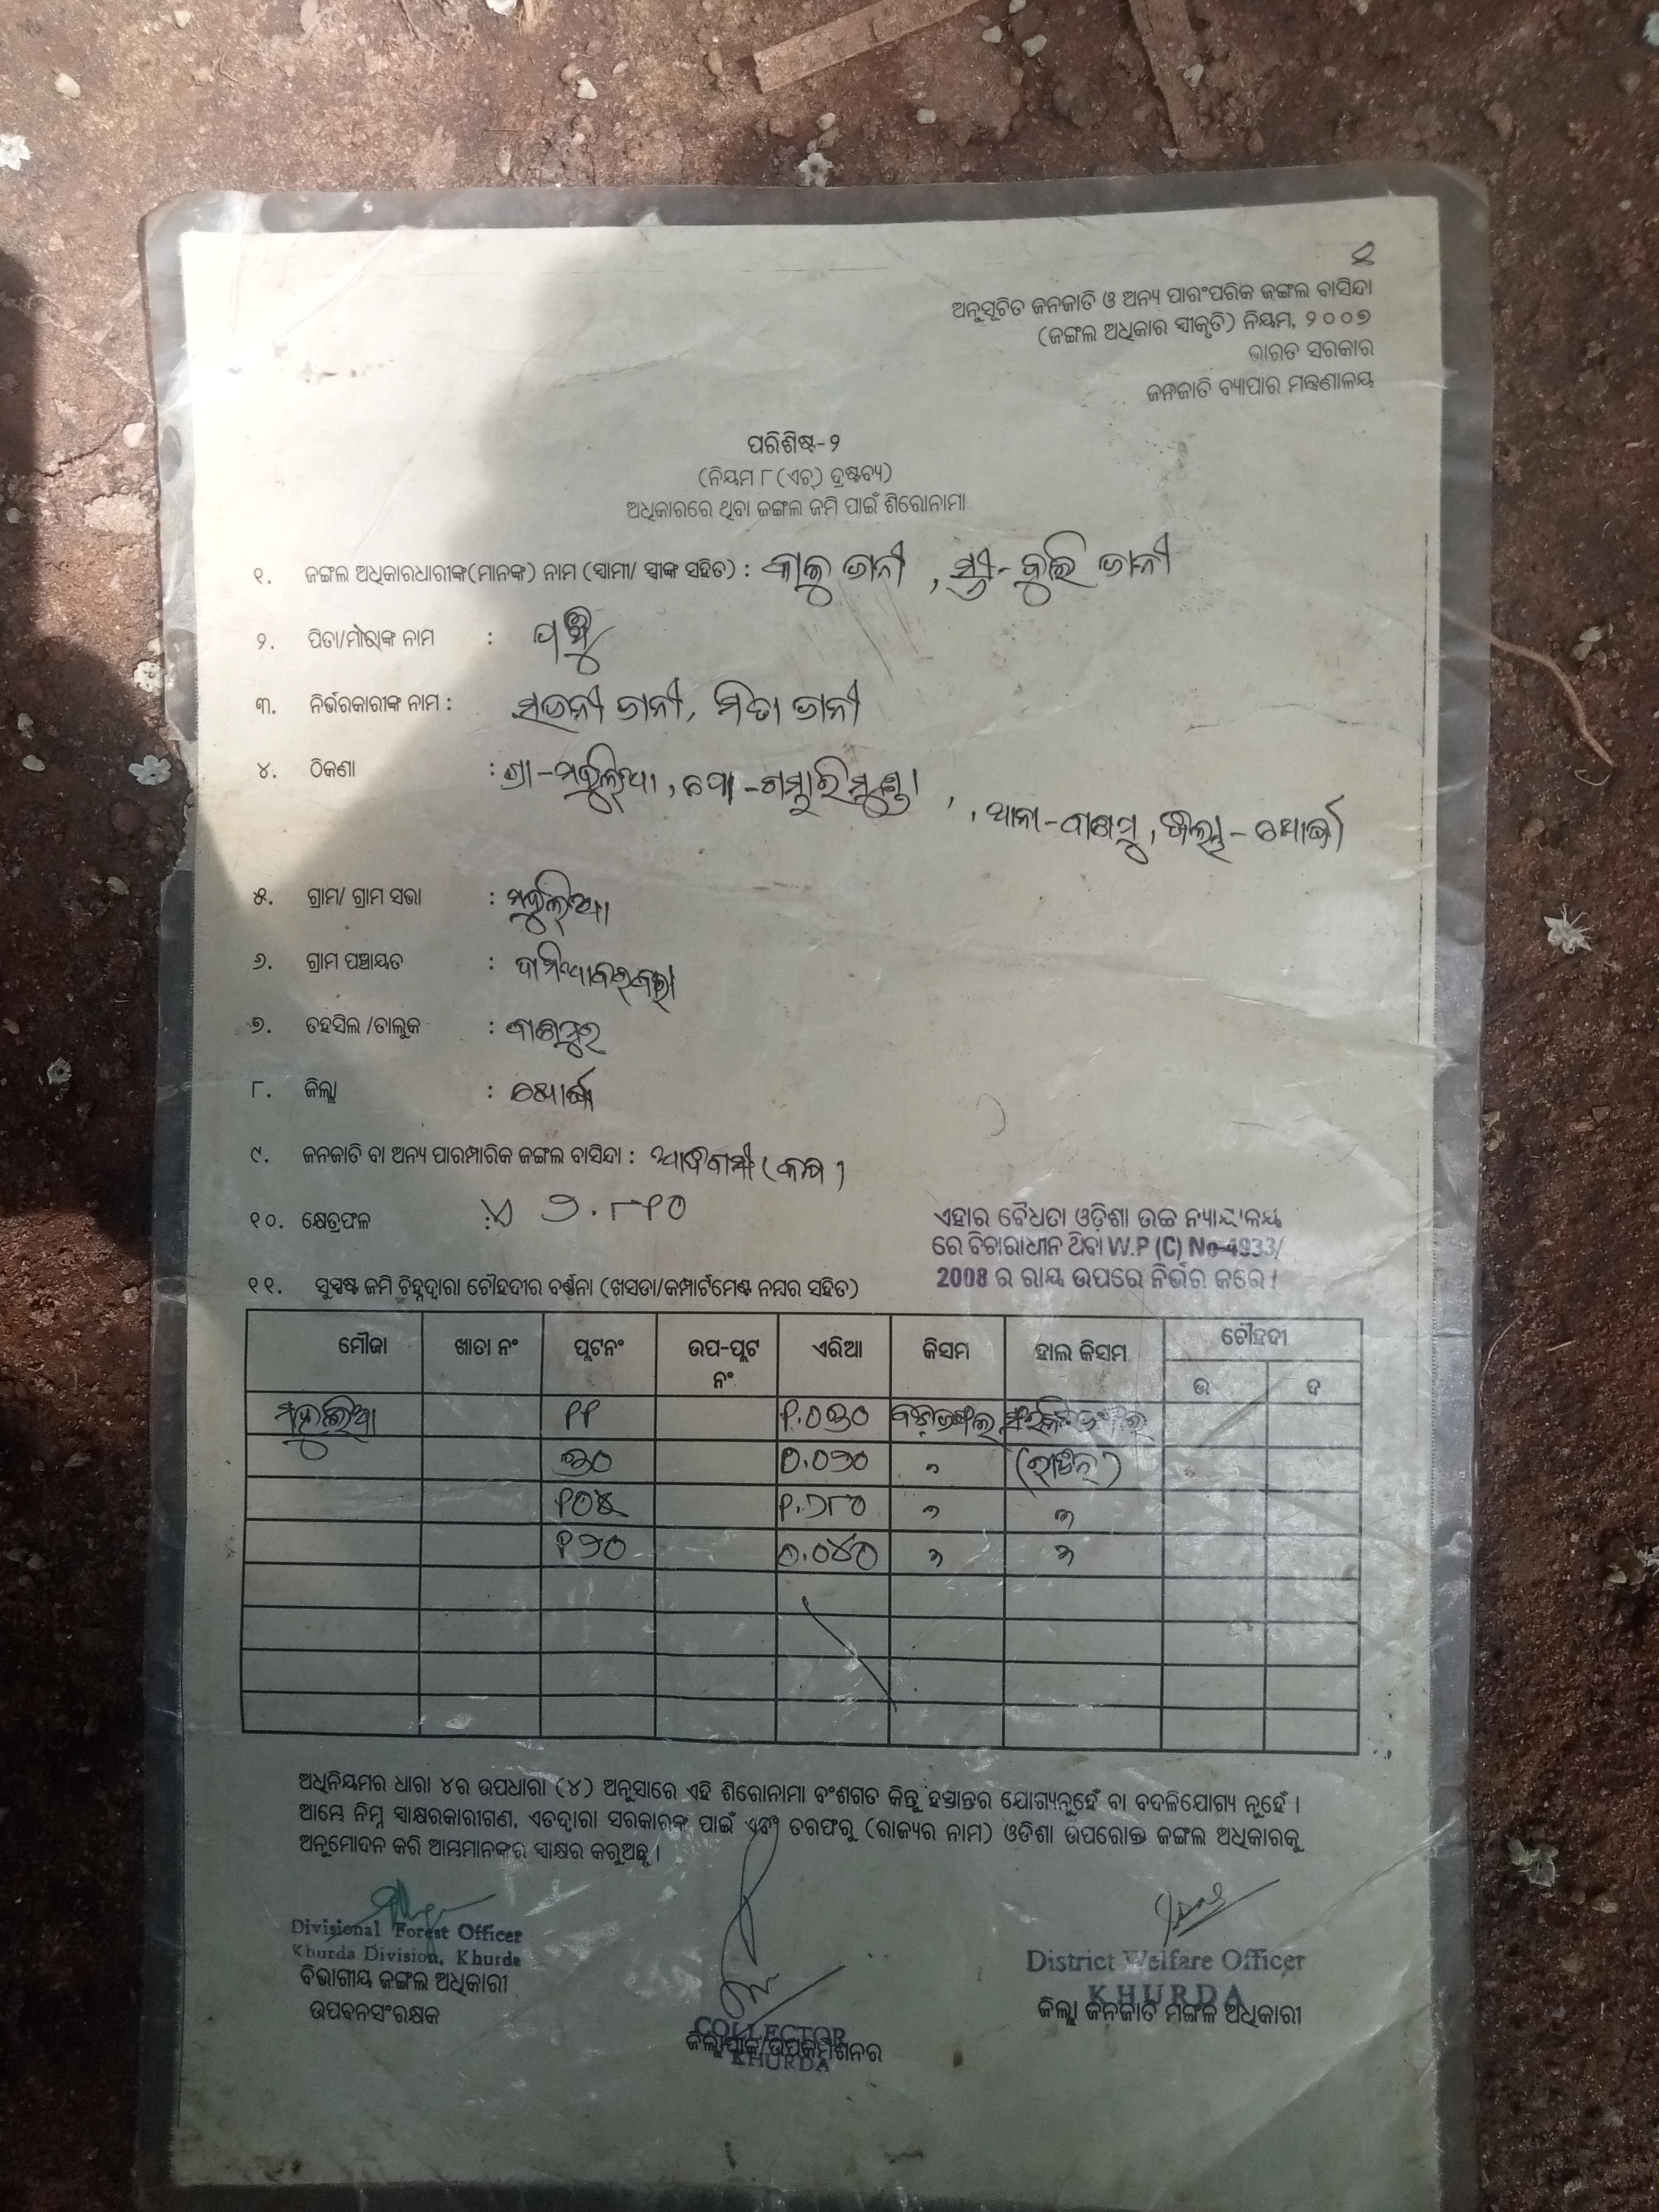 ଅନୁସୂଚିତ ଜନଜାତି ଓ ଅନ୍ୟ ପାରଂପରିକ ଜଙ୍ଗଲ ବାସିନ୍ଦା
(ଜଙ୍ଗଲ ଅଧିକାର ସ୍ୱୀକୃତି) ନିୟମ, ୨୦୦୭
ଭାରତ ସରକାର
ଜନଜାତି ବ୍ୟାପାର ମନ୍ତ୍ରଣାଳୟ
ପରିଶିଷ୍ଟ-୨
(ନିୟମ ୮ (ଏଚ୍) ଦ୍ରଷ୍ଟବ୍ୟ)
ଅଧିକାରରେ ଥିବା ଜଙ୍ଗଲ ଜମି ପାଇଁ ଶିରୋନାମା
୧. ଜଙ୍ଗଲ ଅଧିକାରଧାରୀଙ୍କ(ମାନଙ୍କ) ନାମ (ସ୍ୱାମୀ/ ସ୍ତ୍ରୀଙ୍କ ସହିତ) : ଜାନୀ , ସ୍ତ୍ରୀ- ଜାନୀ
୨. ପିତା/ମାତାଙ୍କ ନାମ :
୩. ନିର୍ଭରକାରୀଙ୍କ ନାମ : ଜାନୀ, ମିତା ଜାନୀ
୪. ଠିକଣା : ଗ୍ରା-ମହୁଲିଆ, ପୋ-ଗମ୍ଭାରିମୁଣ୍ଡା
, ଥାନା-ବାଣପୁର, ଜିଲ୍ଲା-ଖୋର୍ଦ୍ଧା
୫. ଗ୍ରାମ/ ଗ୍ରାମ ସଭା : ମହୁଲିଆ
୬. ଗ୍ରାମ ପଞ୍ଚାୟତ :
୭. ତହସିଲ /ତାଲୁକ : ବାଣପୁର
୮. ଜିଲ୍ଲା : ଖୋର୍ଦ୍ଧା
୯. ଜନଜାତି ବା ଅନ୍ୟ ପାରମ୍ପାରିକ ଜଙ୍ଗଲ ବାସିନ୍ଦା : ଆଦିବାସୀ (କନ୍ଧ)
୧୦. କ୍ଷେତ୍ରଫଳ : ୨.୮୧୦
ଏହାର ବୈଧତା ଓଡ଼ିଶା ଉଚ୍ଚ ନ୍ୟାୟାଳୟ
ରେ ବିଚାରାଧୀନ ଥିବା W.P (C) No-4933/
2008 ର ରାୟ ଉପରେ ନିର୍ଭର କରେ।
୧୧. ସୁସ୍ପଷ୍ଟ ଜମି ଚିହ୍ନଦ୍ୱାରା ଚୌହଦୀର ବର୍ଣ୍ଣନା (ଖସଡା/କମ୍ପାର୍ଟମେଣ୍ଟ ନମ୍ବର ସହିତ)
ମୌଜା ଖାତା ନଂ ପ୍ଲଟନଂ ଉପ-ପ୍ଲଟ ନଂ ଏରିଆ କିସମ ହାଲ କିସମ ଚୌହଦୀ
ଉ ଦ
ମହୁଲିଆ ୧୧ ୧.୦୩୦
୩୦ ୦.୦୨୦ "
୧୦୫ ୧.୬୮୦ " "
୧୨୦ ୦.୦୪୦ " "
ଅଧିନିୟମର ଧାରା ୪ର ଉପଧାରା (୪) ଅନୁସାରେ ଏହି ଶିରୋନାମା ବଂଶଗତ କିନ୍ତୁ ହସ୍ତାନ୍ତର ଯୋଗ୍ୟନୁହେଁ ବା ବଦଳିଯୋଗ୍ୟ ନୁହେଁ ।
ଆମ୍ଭେ ନିମ୍ନ ସ୍ୱାକ୍ଷରକାରୀଗଣ, ଏତଦ୍ୱାରା ସରକାରଙ୍କ ପାଇଁ ଏବଂ ତରଫରୁ (ରାଜ୍ୟର ନାମ) ଓଡିଶା ଉପରୋକ୍ତ ଜଙ୍ଗଲ ଅଧିକାରକୁ
ଅନୁମୋଦନ କରି ଆମ୍ଭମାନଙ୍କର ସ୍ୱାକ୍ଷର କରୁଅଛୁ ।
Divisional Forest Officer
Khurda Division, Khurda
ବିଭାଗୀୟ ଜଙ୍ଗଲ ଅଧିକାରୀ
ଉପବନସଂରକ୍ଷକ
COLLECTOR
ଜିଲ୍ଲାପାଳ/ଉପକମିଶନର
KHURDA
District Welfare Officer
KHURDA
ଜିଲ୍ଲା ଜନଜାତି ମଙ୍ଗଳ ଅଧିକାରୀ